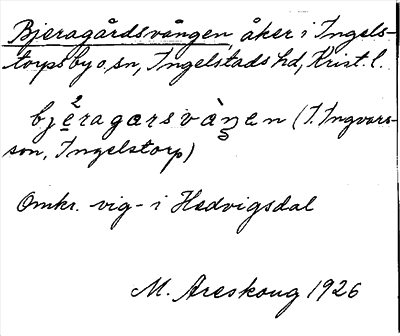 Bjeragårdsvången, åker i Ingels-
torps by o. sn, Ingelstads hd, Krist. l.
bjèragarsvàŋen (I. Ingvars-
son, Ingelstorp)
Omkr. vig- i Hedvigsdal
M. Areskoug 1926